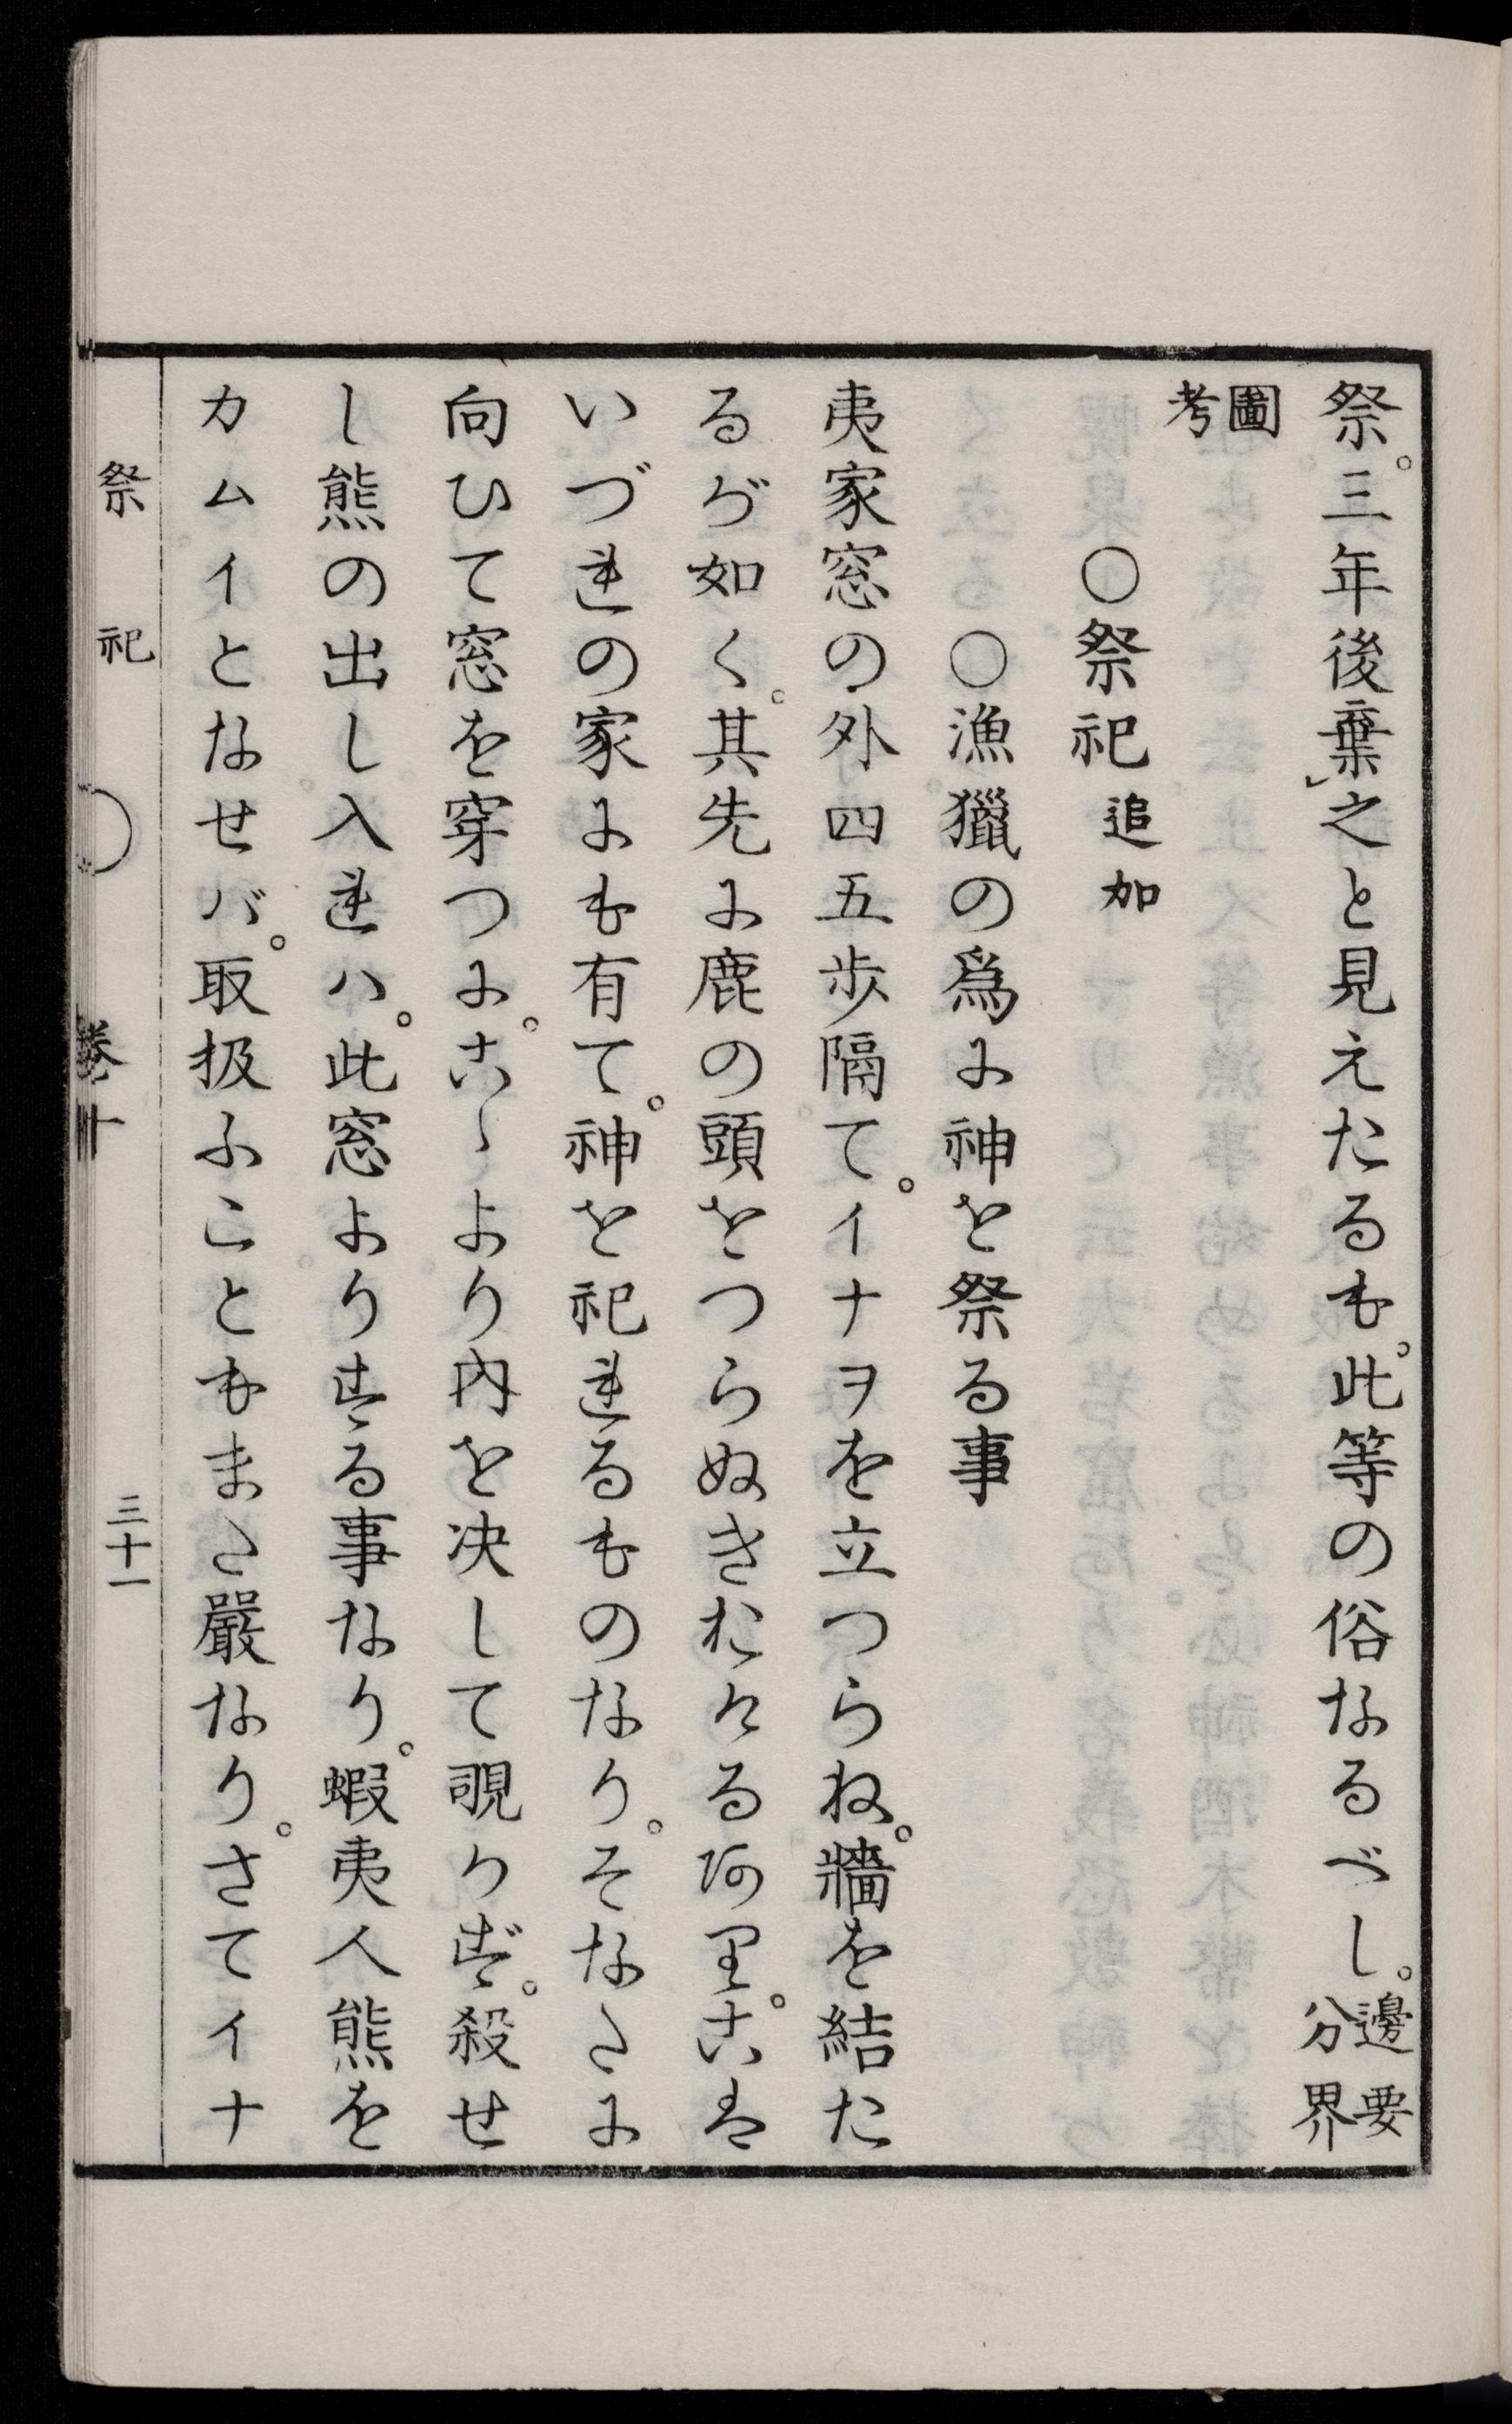 祭。三年後棄之と見えたるも。此等の俗なるべし。邊要分界
圖考
○祭祀 追加
○漁獵の爲に神を祭る事
夷家窓の外四五歩隔て。イナヲを立つらね。牆を結た
るが如く。其先に鹿の頭をつらぬきおくる阿里。こは
いづれの家にも有て。神を祀れるものなり。そなたに
向ひて窓を穿つに。こゝより內を决して覗カず。殺せ
し熊の出し入れハ。此窓よりする事なり。蝦夷人熊を
カムイとなせバ。取扱ふこともまた嚴なり。さてイナ
祭祀 卷十 三十一